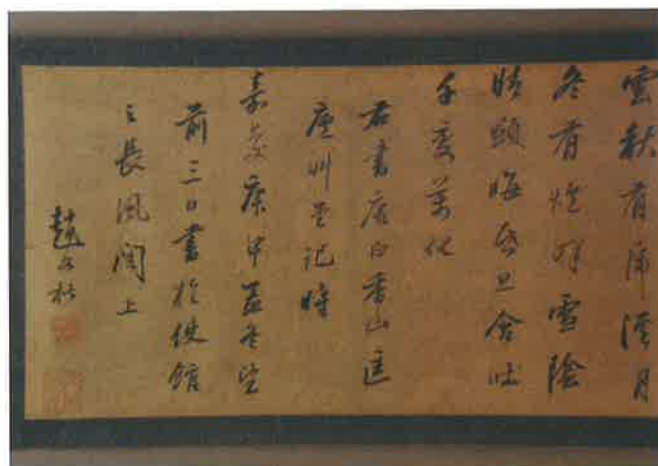 雲秋有虎溪月
冬有爐峰雪陰
晴顯晦昏旦含吐
千變萬化
右書唐白香山匡
廬艸堂記時
嘉慶庚申孟冬望
前三日書於使館
之長風閣上
趙文楷